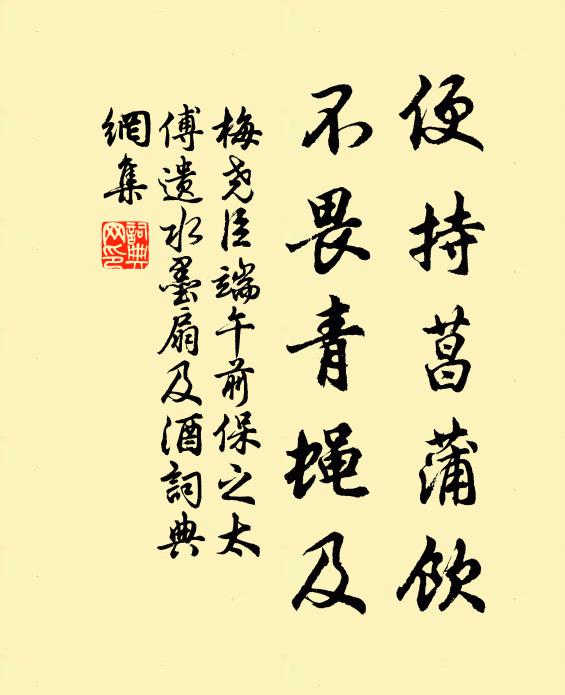 便持菖蒲飲
不畏青蝇及
梅尧臣端午前保之太
傅遗水墨扇及酒詞典
網集
詞典網印